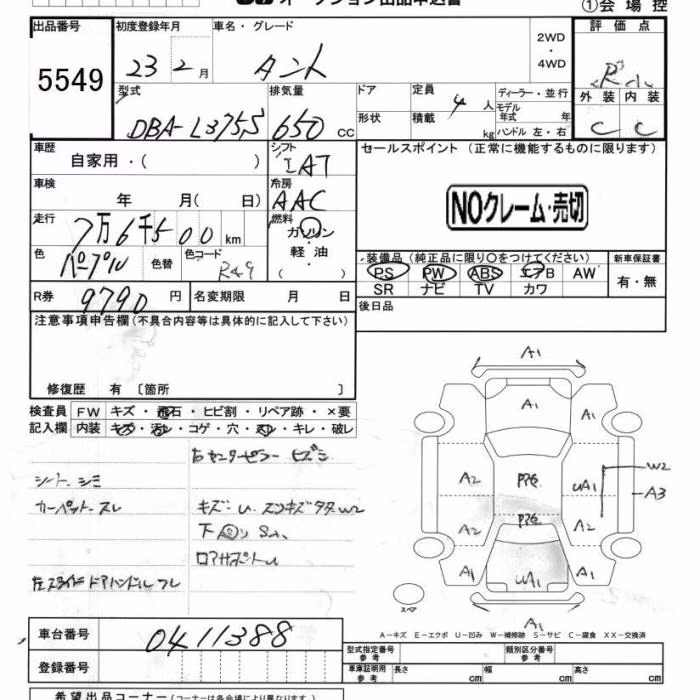 オークション出品申込書
①会場控
出品番号 初度登録年月 車名・グレード 2WD・4WD 評価点
5549 23 2月 タント R
型式 排気量 ドア 定員 ディーラー・並行 外装 内装
DBA-L375S 650 CC 形状 積載 4人 kg モデル年式 年 ハンドル 左・右 C C
車歴 自家用・( ) シフト IAT セールスポイント (正常に機能するものに限ります)
車検 年 月( 日) 冷房 AAC
NOクレーム・売切
走行 7万6千500km 燃料 ガソリン・軽油 ( )
色 パープル 色替 色コード R49
装備品 (純正品に限り○をつけてください) 新車保証書
PS PW ABS エアB AW 有・無
SR ナビ TV カワ
R券 9790円 名変期限 月 日 後日品
注意事項申告欄 (不具合内容等は具体的に記入して下さい)
修復歴 有 〔箇所 〕
検査員 FW キズ・飛石・ヒビ割・リペア跡・×要
記入欄 内装 キズ・汚レ・コゲ・穴・スレ・キレ・破レ
右センターピラー ヒズミ
シート シミ
カーペット スレ キズ・U
W2
ロアサポートU
左スライドドアハンドル スレ
A1
A1 A1
A2 PPG UA1 W2
A3
A2 PPG A2
A1 UA1 A1
スペア
A-キズ E-エクボ U-凹み W-補修跡 S-サビ C-腐食 XX-交換済
車台番号 0411388
型式指定番号 参考 類別区分番号 参考
登録番号
車庫証明用 参考 長さ cm 幅 cm 高さ cm
希望出品コーナー (コーナーは各会場により異なります)